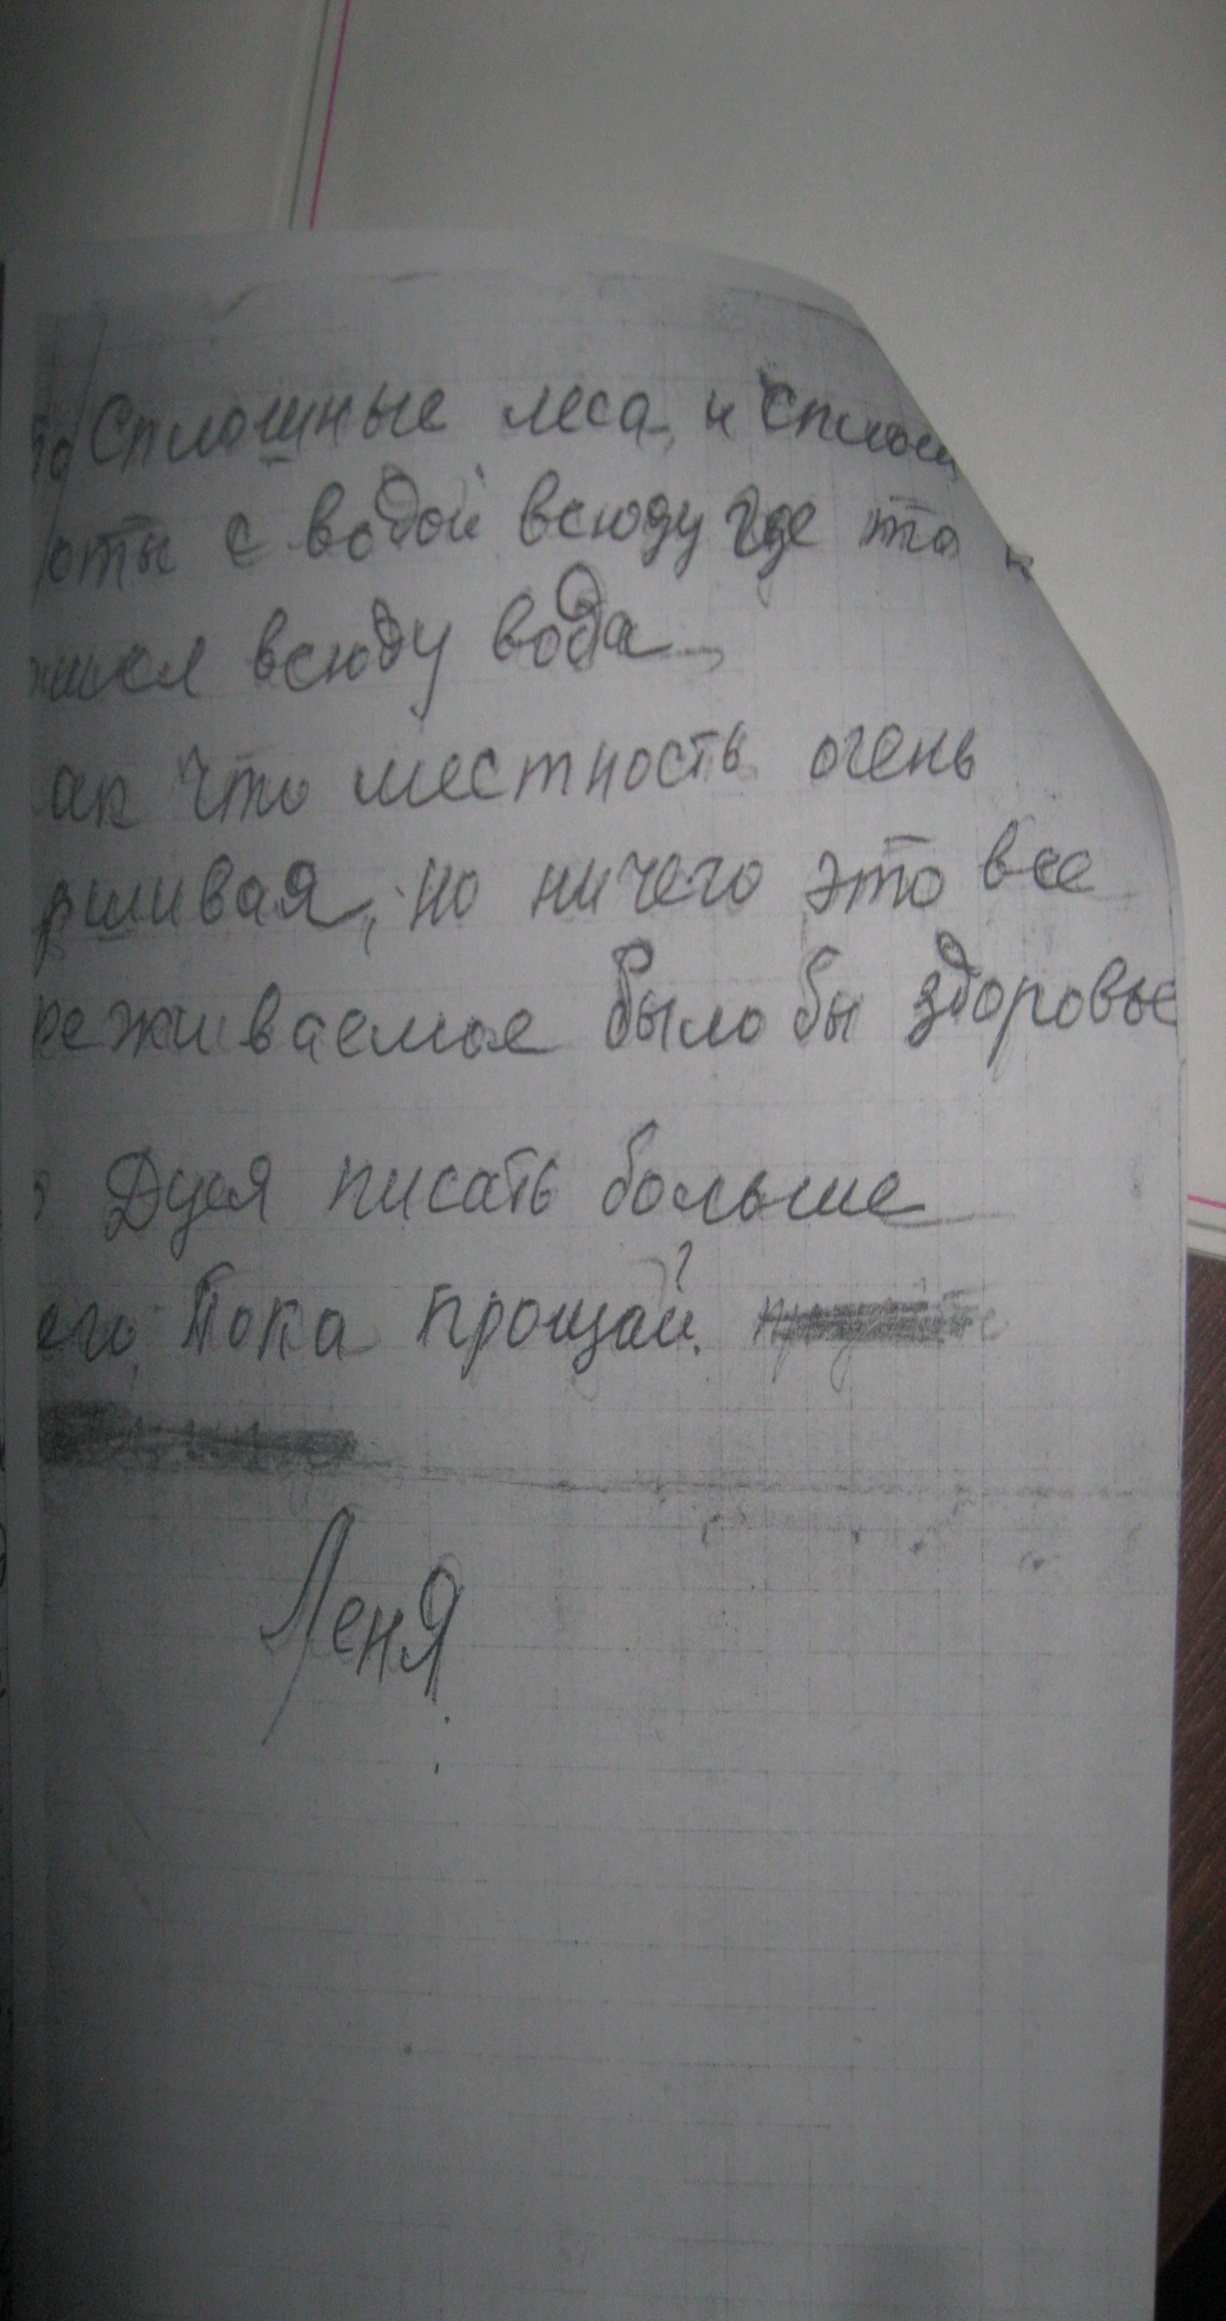 то Сплошные леса, и сплош
оты с водой всюду где то н
всюду вода
ак что местность очень
ршивая, но ничего это все
реживаемое было бы здоровье
Дуся писать больше
его Пока прощай.
Леня